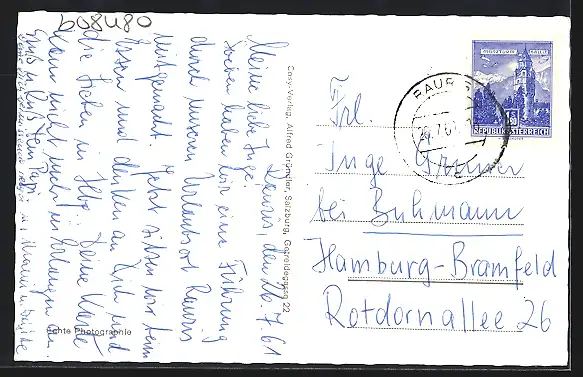 608480
Rauris, den 26.7.61
Meine liebe Inge!
Soeben haben wir eine Führung
durch unseren Urlaubsort Rauris
mitgemacht. Jetzt sitzen wir beim
Essen und denken an Dich und
die Lieben in Hbg. Deine Karte
kam nicht mehr in
Gruß u. Kuß Dein Papi
Cosy-Verlag, Alfred Gründler, Salzburg, Getreidegasse 22
Echte Photographie
RAURIS
26.7.61
REPUBLIK ÖSTERREICH
Frl.
Inge Grüner
bei Buhmann
Hamburg-Bramfeld
Rotdornallee 26